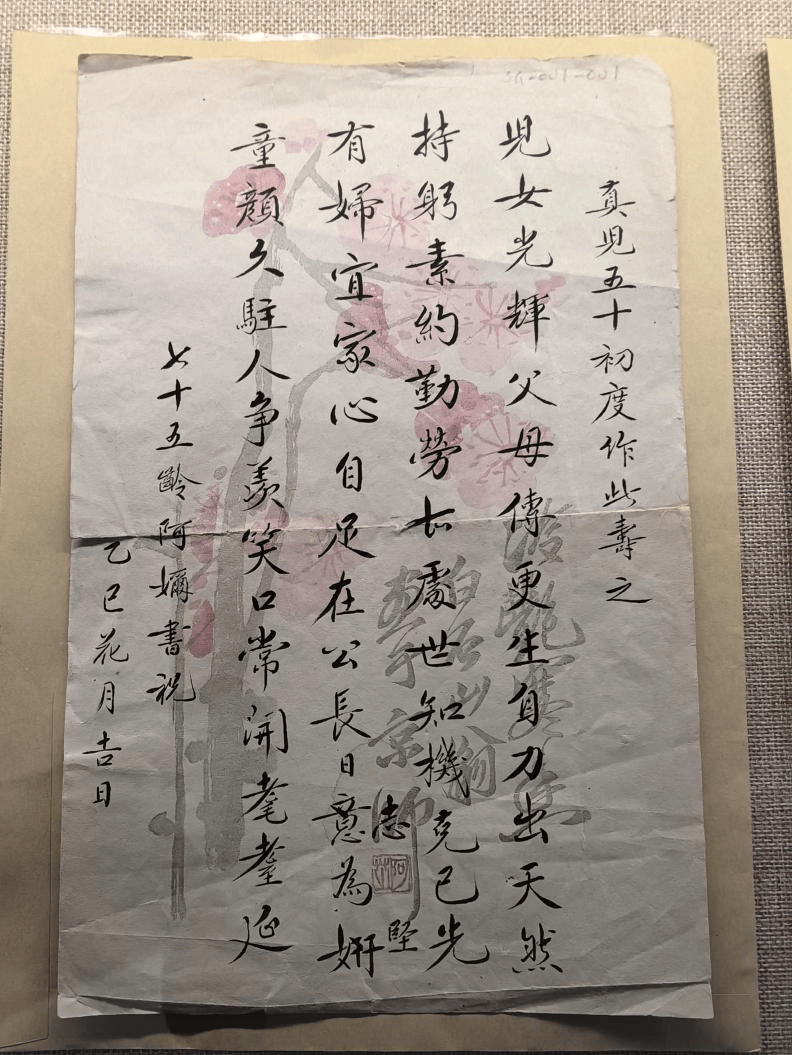 真児五十初度作此壽之
児女光輝父母傳更生自力出天然
持躬素約勤勞右處世知機克己先
有婦宜家心自足在公長日意為妍
志堅
童顔久駐人争羨笑口常開耄耋延
七十五齡阿嬭書祝
乙巳花月吉日
SG-001-001